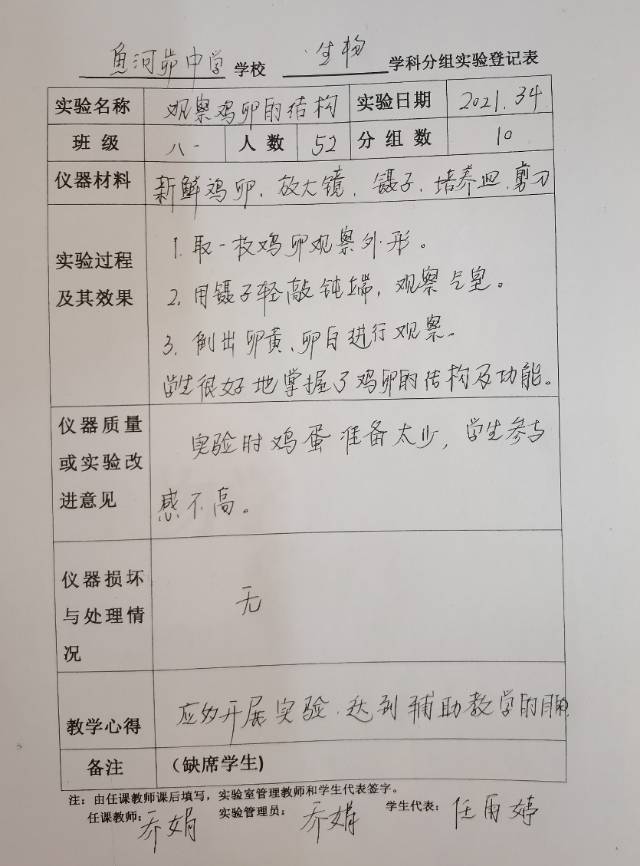 鱼河峁中学 学校 生物 学科分组实验登记表
实验名称 观察鸡卵的结构 实验日期 2021.3.4
班级 八一 人数 52 分组数 10
仪器材料 新鲜鸡卵、放大镜、镊子、培养皿、剪刀
实验过程
及其效果
1.取一枚鸡卵观察外形。
2.用镊子轻敲钝端,观察气室。
3.倒出卵黄、卵白进行观察。
学生很好地掌握了鸡卵的结构及功能。
仪器质量
或实验改
进意见
实验时鸡蛋准备太少,学生参与
感不高。
仪器损坏
与处理情
况
无
教学心得 应多开展实验.达到辅助教学的目的
备注 (缺席学生)
注:由任课教师课后填写,实验室管理教师和学生代表签字。
任课教师:乔娟 实验管理员:乔娟 学生代表:任雨婷